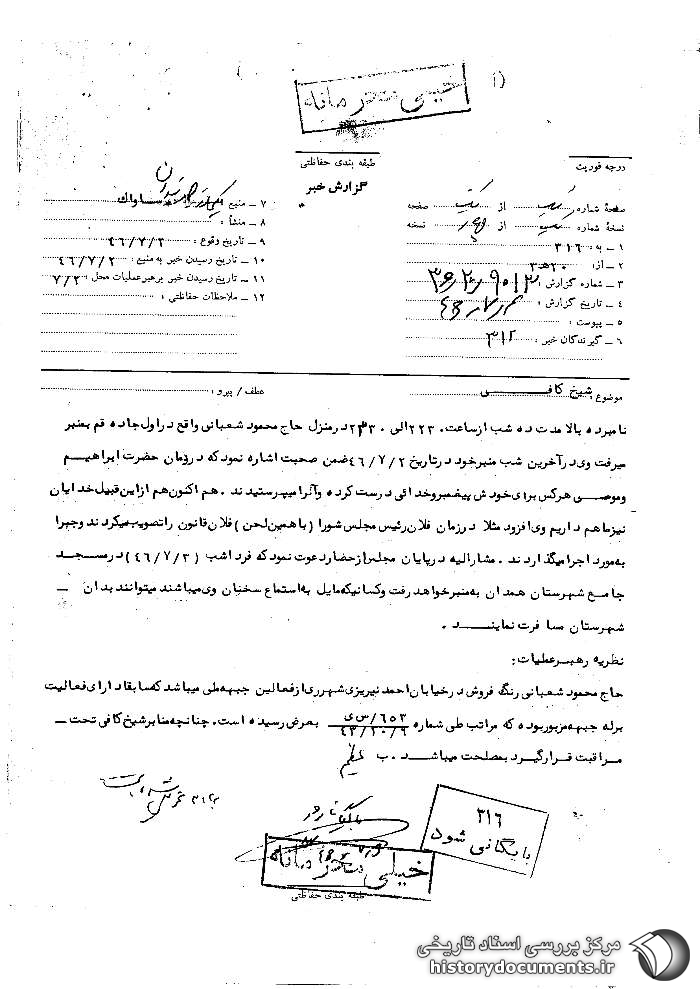 خیلی محرمانه
طبقه بندی حفاظتی
گزارش خبر
درجه فوریت
صفحهٔ شماره یک از یک صفحه
نسخهٔ شماره از نسخه
۱ ـ به : ۳۱۶
۲ ـ از : ۲۰ ه‍ ۳
۳ ـ شماره گزارش :
۴ ـ تاریخ گزارش :
۵ ـ پیوست :
۶ ـ گیرندگان خبر : ۳۱۲
۷ ـ منبع ساواك
۸ ـ منشأ :
۹ ـ تاریخ وقوع : ۴۶/۷/۲
۱۰ ـ تاریخ رسیدن خبر به منبع : ۴۶/۷/۲
۱۱ ـ تاریخ رسیدن خبر برهبر عملیات محل : ۷/۲
۱۲ ـ ملاحظات حفاظتی :
موضوع : شیخ کافی
عطف / پیرو :
نامبرده بالا مدت ده شب از ساعت الی در منزل حاج محمود شعبانی واقع در اول جاده قم بمنبر
میرفت وی در آخرین شب منبر خود در تاریخ ۴۶/۷/۲ ضمن صحبت اشاره نمود که در زمان حضرت ابراهیم
و موسی هرکس برای خودش پیغمبر و خدائی درست کرده و آنرا میپرستیدند . هم اکنون هم از این قبیل خدایان
نیز ما هم داریم وی افزود مثلا در زمان فلان رئیس مجلس شورا (با همین لحن) فلان قانون را تصویب میکردند و جبرا
به مورد اجرا میگذاردند . مشارالیه در پایان مجلس از حضار دعوت نمود که فردا شب (۴۶/۷/۳) در مسجد
جامع شهرستان همدان به منبر خواهد رفت و کسانیکه مایل به استماع سخنان وی میباشند میتوانند بدان ـ
شهرستان مسافرت نمایند .
نظریه رهبر عملیات :
حاج محمود شعبانی رنگ فروش در خیابان احمد نیریزی شهرری از فعالین جبهه ملی میباشد که سابقا دارای فعالیت
برله جبهه مزبور بوده که مراتب طی شماره ۶۵۳/س ی ۴۳/۱۰/۹ بعرض رسیده است . چنانچه منابر شیخ کافی تحت ـ
مراقبت قرار گیرد بمصلحت میباشد . ب
۳۱۶
بایگانی شود
خیلی محرمانه
طبقه بندی حفاظتی
مرکز بررسی اسناد تاریخی
historydocuments.ir